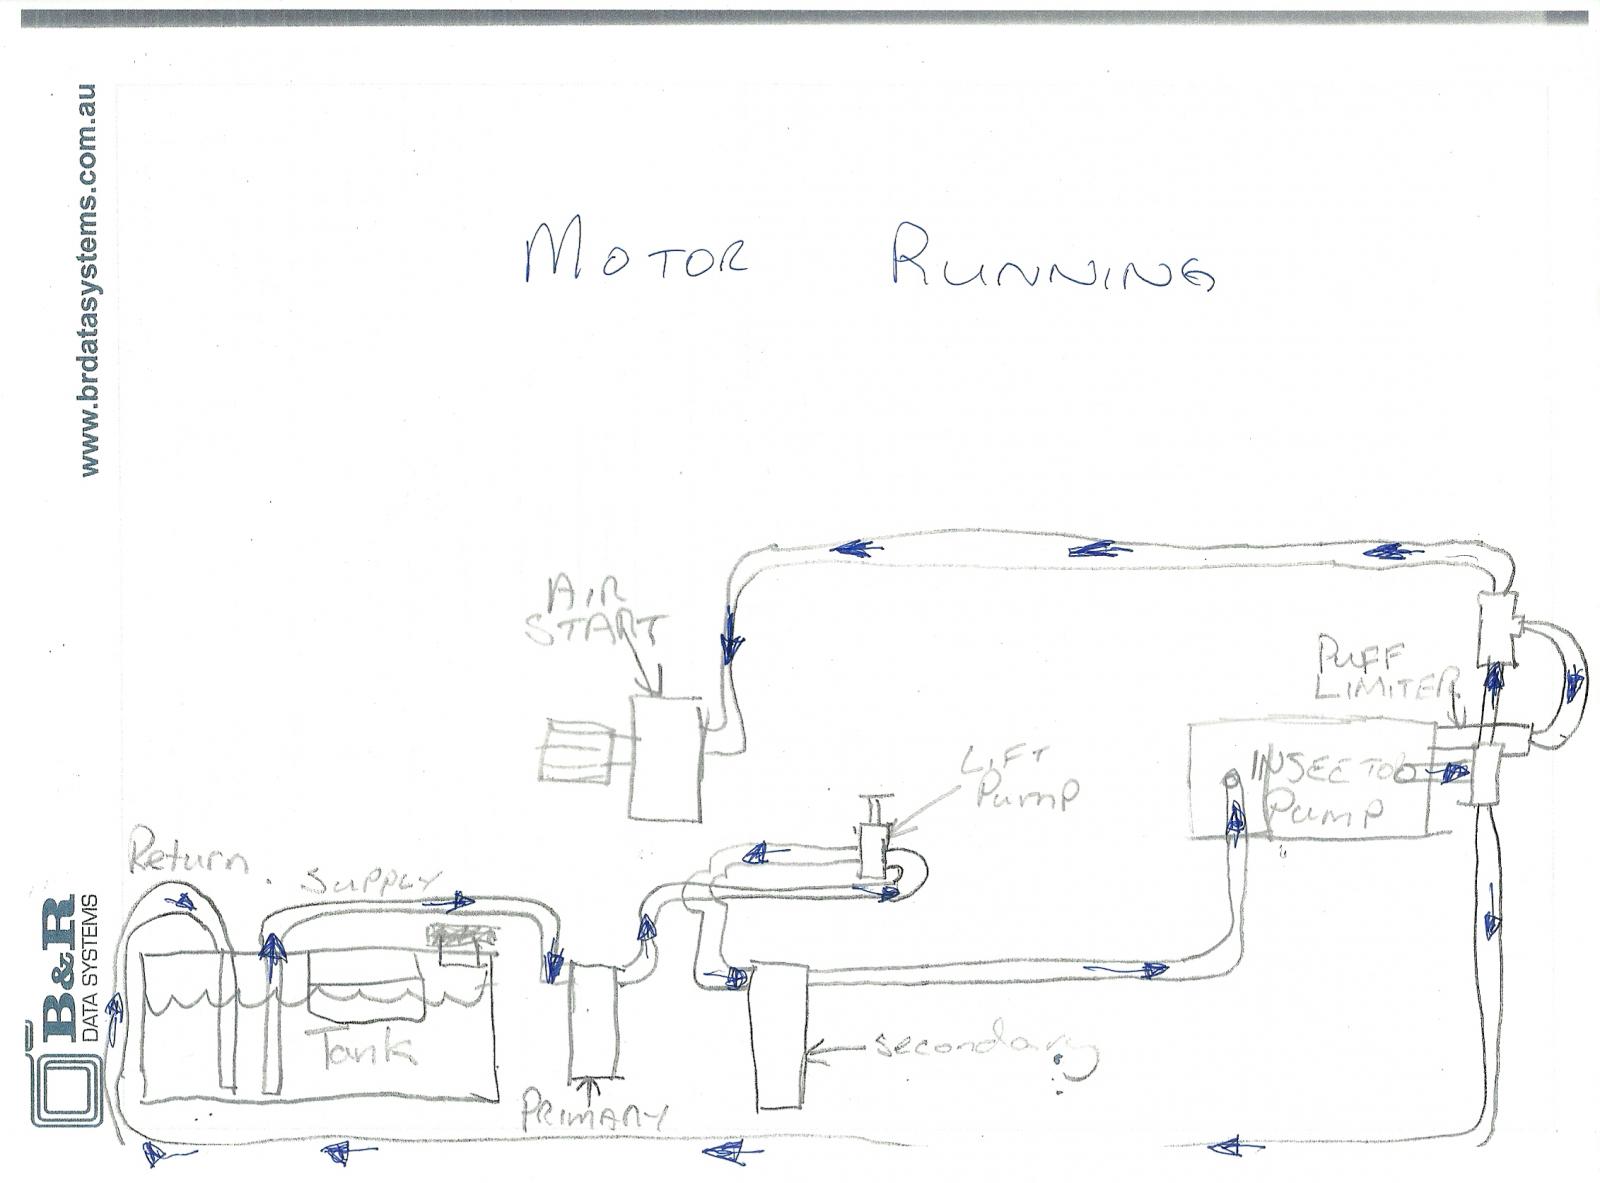 www.brdatasystems.com.au
MOTOR RUNNING
AIR
START
PUFF
LIMITER
LIFT
PUMP
INJECTOR
PUMP
Return
SUPPLY
B&R
DATA SYSTEMS
Tank
secondary
PRIMARY